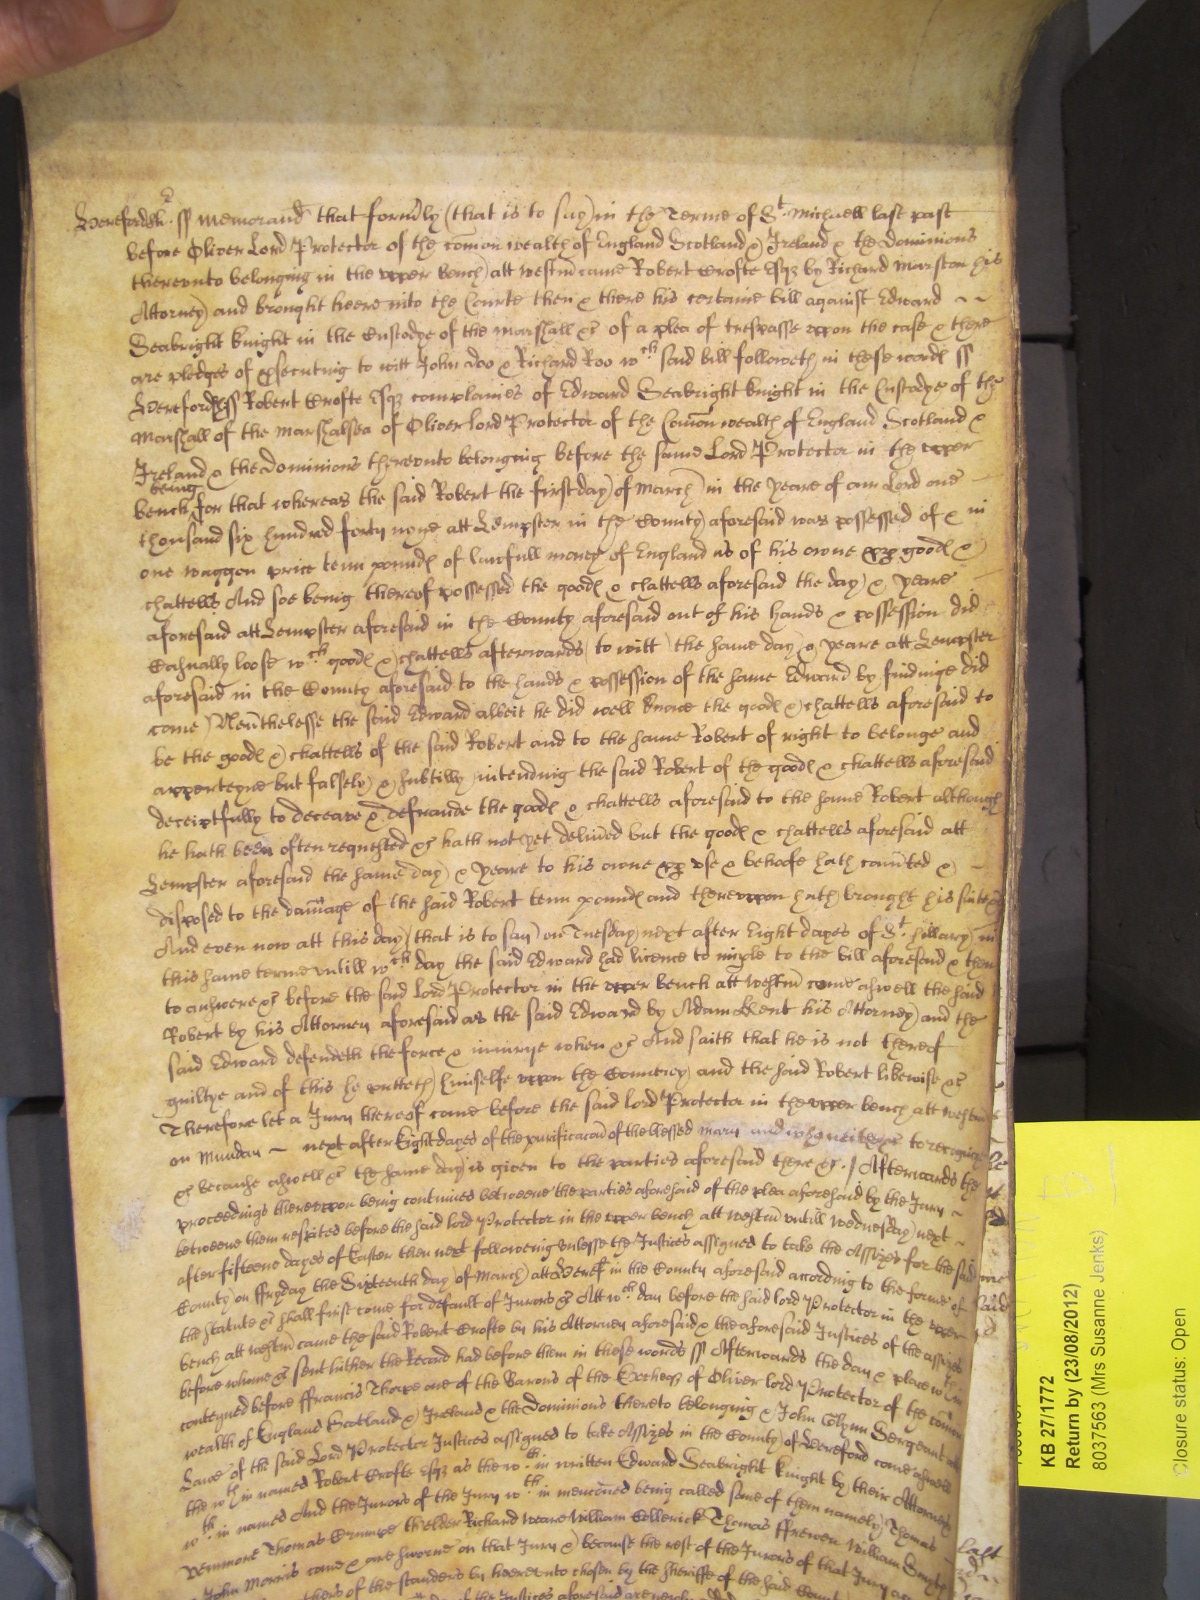 Herefordsh. ss Memorand that formly (that is to say) in the Terme of St. Michaell last past
before Oliver Lord Protector of the Comon wealth of England Scotland & Ireland & the dominions
thereunto belonging in the upper bench att westm came Robert Crofte Esqz by Richard Marston his
Attorney and brought heere into the Courte then & there his certaine bill against Edward
Seabright Knight in the Custodye of the Marshall &c of a plea of trespasse uppon the case & there
are pledges of psecuting to witt John doo & Richard Roo wch said bill followeth in these words ss
Hereford ss Robert Crofte Esqz complaines of Edward Seabright Knight in the Custodye of the
Marshall of the Marshalsea of Oliver lord Protector of the Comon wealth of England Scotland &
Ireland & the dominions thereunto belonging before the same Lord Protector in the upper
bench being for that whereas the said Robert the first day of March in the yeare of our Lord one
thousand six hundred forty nyne att Lempster in the County aforesaid was possessed of & in
one waggon price tenn pounds of lawfull money of England as of his owne pp goods &
chattells And soe being thereof possessed the goods & chattells aforesaid the day & yeare
aforesaid att Lempster aforesaid in the County aforesaid out of his hands & possession did
Casually loose wch goods & chattells afterwards to witt the same day & yeare att Lempster
aforesaid in the County aforesaid to the hands & possession of the same Edward by findinge did
come Neuthelesse the said Edward albeit he did well knowe the goods & chattells aforesaid to
be the goods & chattells of the said Robert and to the same Robert of right to belonge and
apperteyne but falsely & subtilly intending the said Robert of the goods & chattells aforesaid
deceiptfully to deceave & defraude the goods & chattells aforesaid to the same Robert although
he hath been often requested &c hath not yet deliued but the goods & chattells aforesaid att
Lempster aforesaid the same day & yeare to his owne pp use & behoofe hath conuted &
disposed to the damage of the said Robert tenn pounds and thereuppon hath brought his suite &c
And even now att this day (that is to say) on Tuesday next after Eight dayes of St. Hillary in
this same terme untill wch day the said Edward had licence to imple to the bill aforesaid & then
to answere &c before the said Lord Protector in the upper bench att westm come aswell the said
Robert by his Attorney aforesaid as the said Edward by Adam Kent his Attorney and the
said Edward defendeth the force & iniurye when &c And saith that he is not thereof
guiltye and of this he putteth himselfe uppon the Countrey and the said Robert likewise &c
Therefore let a Jury thereof come before the said lord Protector in the upper bench att westm
on Munday next after Eight dayes of the purificacon of the blessed Mary and who neither &c to recognize
&c because aswell &c the same day is given to the parties aforesaid there &c Afterwards the
proceedings thereuppon being continued betweene the parties aforesaid of the plea aforesaid by the Jury
betweene them respited before the said lord Protector in the upper bench att westm untill wednesday next
after fifteene dayes of Easter then next following unlesse the Justices assigned to take the Assizes for the said
County on ffryday the Sixteenth day of March att Heref in the County aforesaid according to the forme of
the statute &c shall first come for default of Jurors &c Att wch day before the said lord Protector in the upper
bench att westm came the said Robert Crofte by his Attorney aforesaid & the aforesaid Justices of the assizes
before whome &c sent hither the Record had before them in these words ss Afterwards the day & place wthin
conteyned before ffrancis Thorpe one of the Barons of the Excheqz of Oliver lord Protector of the comon
wealth of England Scotland & Ireland & the Dominions thereto belonging & John Glynn Sergeant att
Lawe of the said Lord Protector Justices assigned to take Assizes in the County of Hereford come aswell
the wth in named Robert Crofte Esqz as the wth in written Edward Seabright Knight by their Attorneys
wth in named And the Jurors of the Jury wth in menconed being called some of them namely Thomas
Thomas the elder Richard Weare William Thomas ffrewen William
John Morris come & are sworne on that Jury & because the rest of the Jurors of that Jury
of the standers by hereunto chosen by the sheriffe of the said
of the Justices aforesaid are newly
last
KB 27/1772
Return by (23/08/2012)
8037563 (Mrs Susanne Jenks)
Closure status: Open